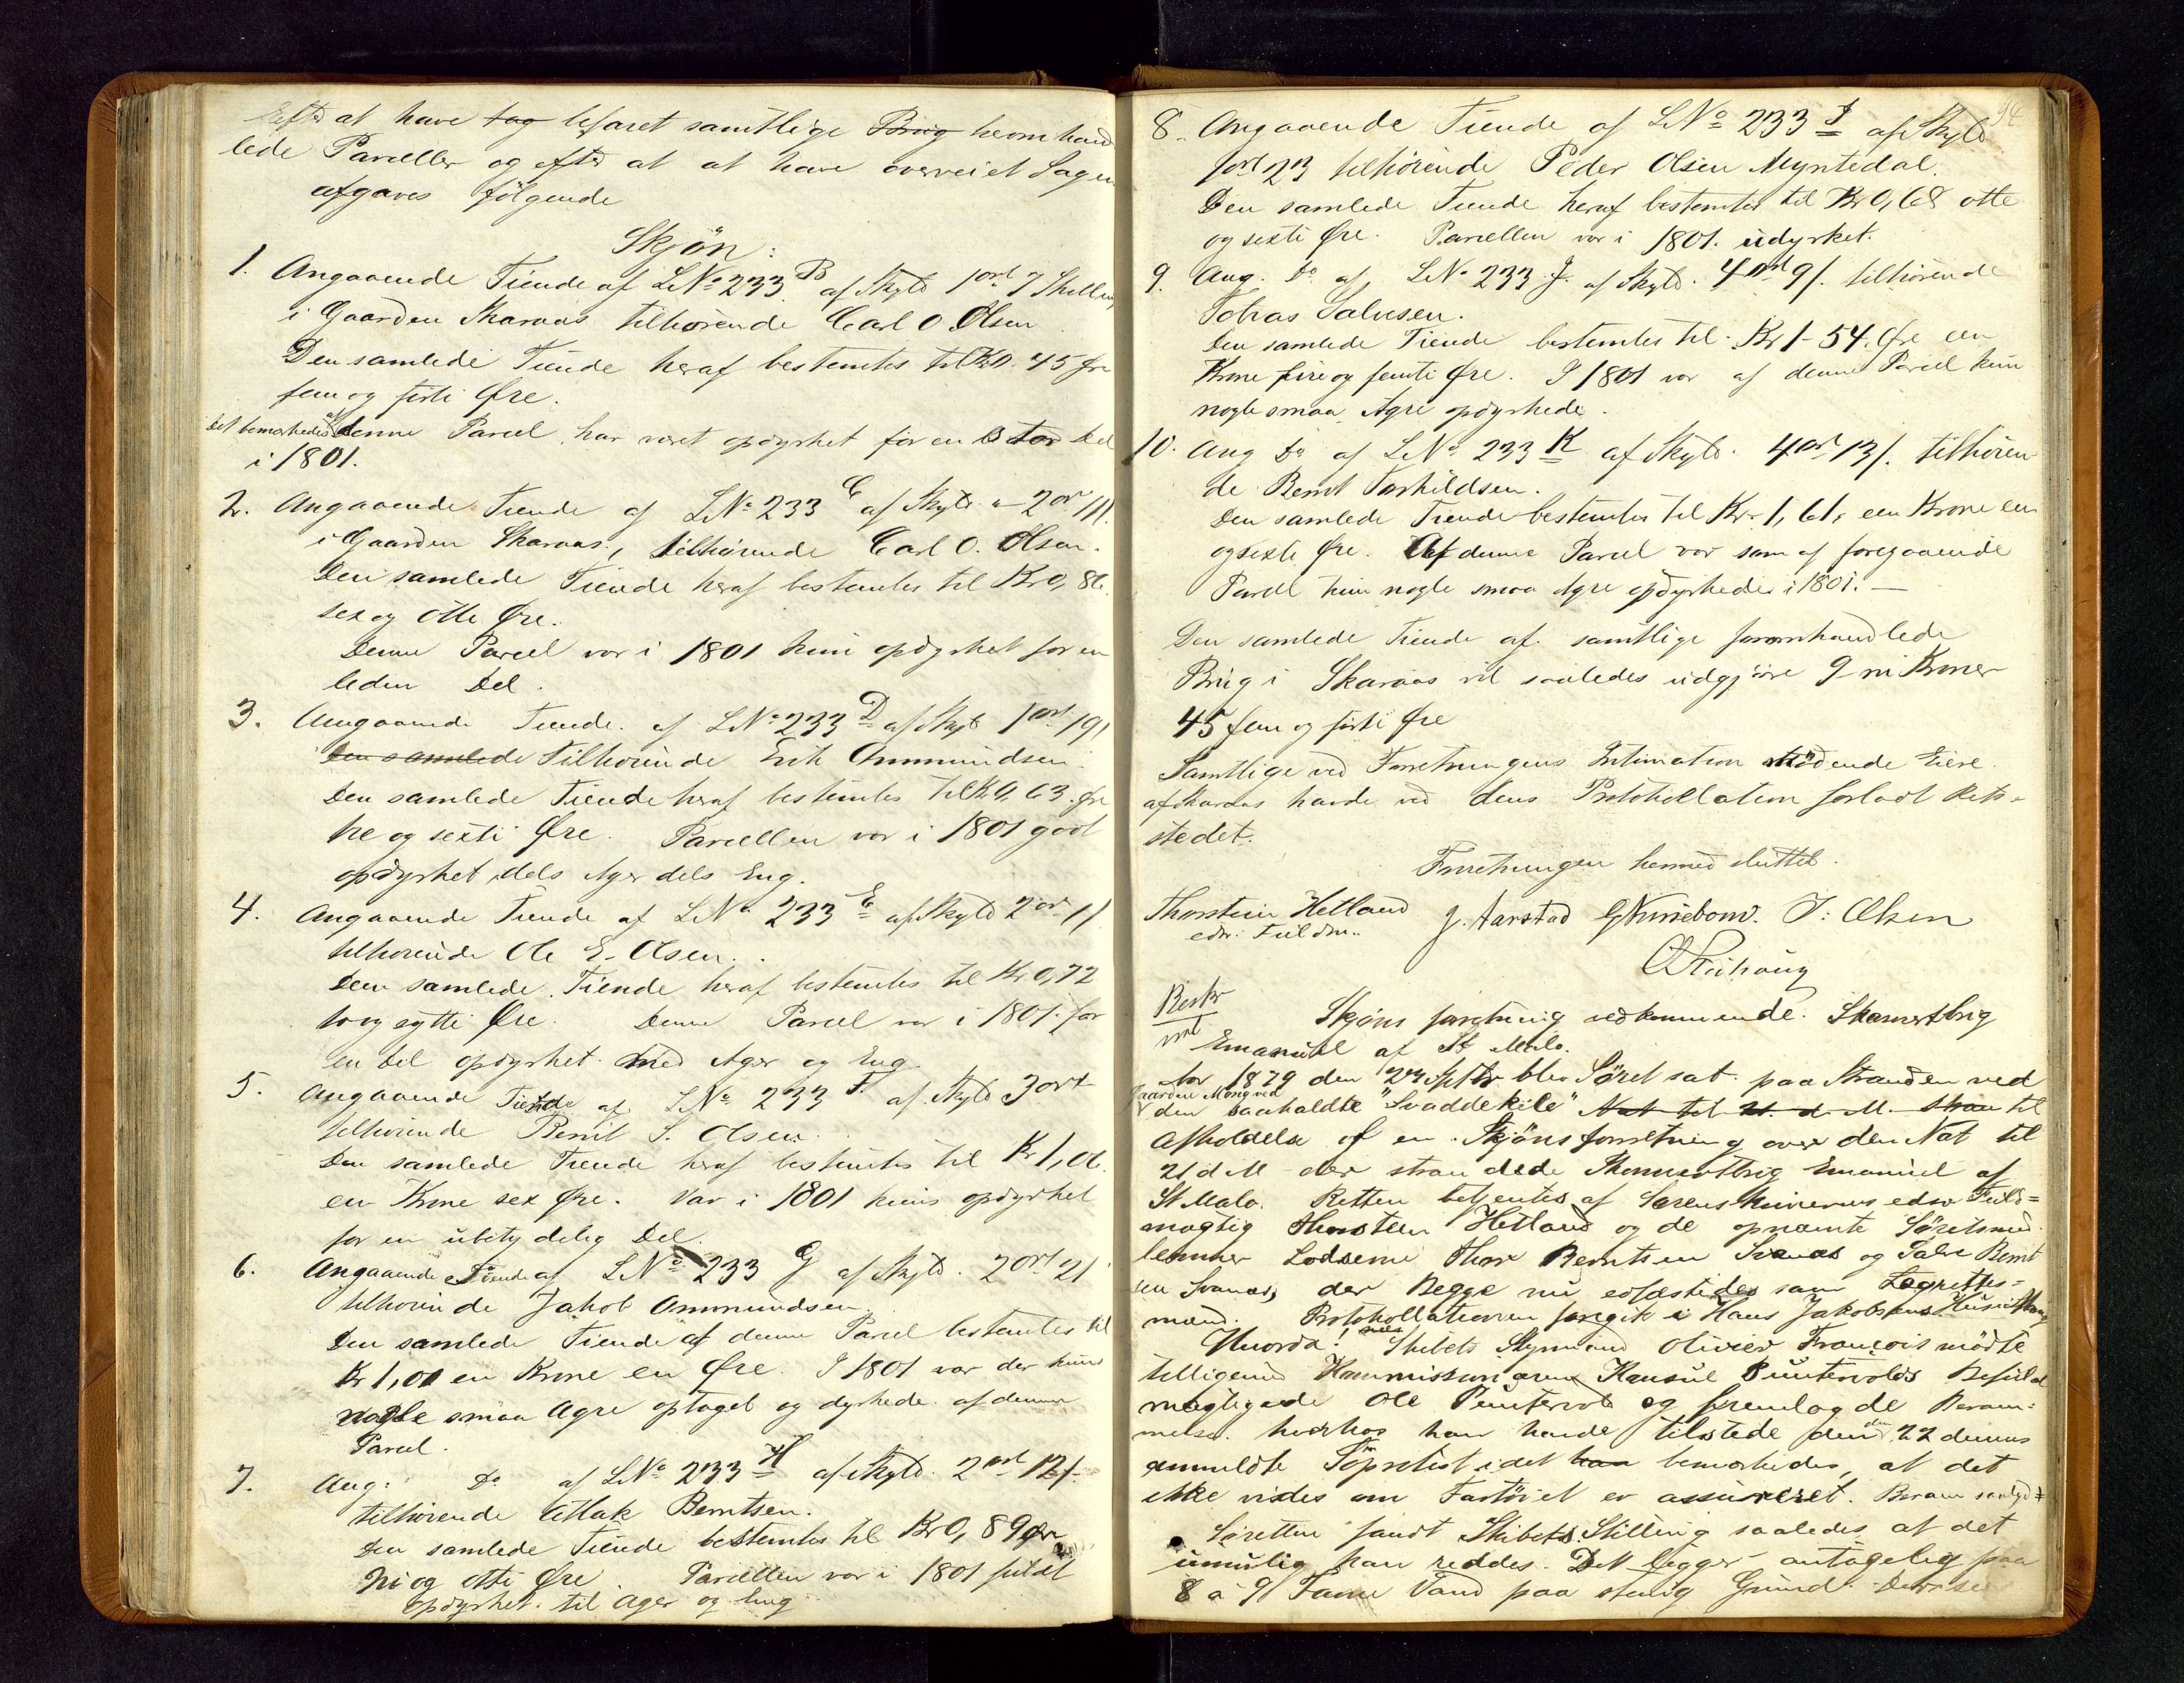 Efter at have tag besaret samtlige Brug heromhand
lede Parceller og efter at at have overveiet Sagen
afgaves følgende
Skjøn:
1. Angaaende Tiende af LNo 233 B af Skyld 1 ort 7 Skilling
i Gaarden Skaraas tilhørende Carl O Olsen
Den samlede Tiende heraf bestemtes til Kr 0. 45 Øre
fem og førti Øre.
Det bemærkedes at denne Parcel har været opdyrket for en stor Del
i 1801.
2. Angaaende Tiende af LNo 233 C af Skyld 2 ort 11
i Gaarden Skaraas, tilhørende Carl O. Olsen.
Den samlede Tiende heraf bestemtes til Kr 0, 86
sex og otti Øre.
Denne Parcel var i 1801 kun opdyrket for en
liden Del.
3. Angaaende Tiende af LNo 233 D af Skyld 1 ort 19
Den samlede tilhørende Erik Ommundsen.
Den samlede Tiende heraf bestemtes til Kr 0, 63 Øre
tre og sexti Øre. Parcellen var i 1801 godt
opdyrket, dels Ager dels Eng.
4. Angaaende Tiende af LNo 233 E af Skyld 2 ort 1/
tilhørende Ole E. Olsen.
Den samlede Tiende heraf bestemtes til Kr 0,72
to og sytti Øre. Denne Parcel var i 1801 for
en Del opdyrket med Ager og Eng
5. Angaaende Tiende af LNo 233 F af Skyld 3 ort
tilhørende Bernt S. Olsen.
Den samlede Tiende heraf bestemtes til Kr 1,06
en Krone sex Øre. Var i 1801 kuns opdyrket
for en ubetydelig Del.
6. Angaaende Tiende af LNo 233 G af Skyld. 2 ort 21
tilhørende Jakob Ommundsen
Den samlede Tiende af denne Parcel bestemtes til
Kr 1,01 en Krone en Øre. I 1801 var der kuns
nogle smaa Agre optaget og dyrkede af denne
Parcel.
7. Ang: Do af LNo 233 H af Skyld. 2 ort 12/.
tilhørende Atlak Berntsen.
Den samlede Tiende bestemtes til Kr 0, 89 Øre
ni og otti Øre. Parcellen var i 1801 fuldt
opdyrket til Ager og Eng
8. Angaaende Tiende af LNo 233 I af Skyld
1 ort 23 tilhørende Peder Olsen Myntedal.
Den samlede Tiende heraf bestemtes til Kr 0, 68 otte
og sexti Øre. Parcellen var i 1801. udyrket.
9. Ang. Do af LNo 233 J. af Skyld. 4 ort 9/. tilhørende
Tobias Salvesen.
Den samlede Tiende bestemtes til Kr 1-54. Øre en
Krone fire og femti Øre. I 1801 var af denne Parcel kun
nogle smaa Agre opdyrkede.
10. Ang Do af LNo 233 K af Skyld. 4 ort 13/. tilhøren
de Bernt Torkildsen.
Den samlede Tiende bestemtes til Kr. 1, 61, een Krone een
og sexti Øre. Af denne Parcel var som af foregaaende
Parcel kun nogle smaa Agre opdyrkede i 1801. —
Den samlede Tiende af samtlige foranhandlede
Brug i Skaraas vil saaledes udgjøre 9 ni Kroner
45 fem og førti Øre
Samtlige ved Forretningens Intimation mødende Eiere
af Skaraas havde ved dens Protokollation forladt Rets-
stedet.
Forretningen hermed sluttet.
Thorstein Hetland J. Aarstad J: Olsen
edsv. Fuldm.
Skjøns forretning vedkommende Skonnertbrig
Emanuel af St Malo.
Aar 1879 den 24 Septbr blev Søret sat paa Stranden ved
Gaarden Mong ved
den saakaldte "Svaddekile" Nat til 21. d. M. stran til
Afholdelse af en Skjønsforretning over den Nat til
21 d M der strandede Skonnertbrig Emanuel af
St Malo. Retten betjentes af Sorenskriverens edsv Fuld=
mægtig Thorstein Hetland og de opnævnte Søretsmed
lemmer Lodserne Thore Berntsen Svanæs og Salve Bernt
sen Svanæs, der Begge nu edfæstedes som Lagrettes=
mænd. Protokollationen foregik i Hans Jakobsens Hus i Mong
Hvorda! Skibets Styrmand Olivier François mødte
telligemed Kommissionæren Konsul Puntervolds Befuld
mægtigede Ole Puntervold og fremlagde Beram=
melse. hvorhos han havde tilstede den 22 dennes
anmeldte Søprotest idet han bemærkedes, at det
ikke vides om Fartøiet er assureret. Beram saalyd #
Søretten fandt Skibets Stilling saaledes at det
umulig kan reddes. Det ligger antagelig paa
8 á 9 Favne Vand paa stenig Grund.